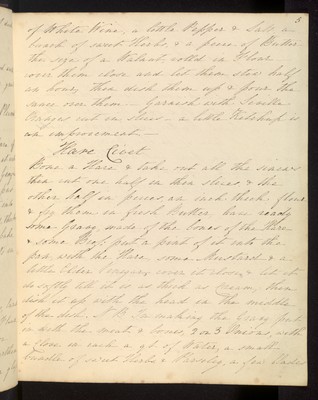 5
of White Wine, a little Pepper & Salt, a
bunch of sweet Herbs & a piece of Butter
the size of a Walnut, rolld in Flour
cover them close and let them stew half
an hour, then dish them up & pour the
sauce over them — Garnish with Seville
Oranges cut in slices — a little Ketchup is
an improvement —
Hare Civet
Bone a Hare & take out all the sinews
then cut one half in thin slices & the
other half in pieces, an inch thick, flour
& fry them in fresh Butter, have ready
some Gravy made of the bones of the Hare
& some Beef put a pint of it into the
pan with the Hare, some Mustard & a
little Elder Vinegar, cover it close & let it
do softly till it is as thick as Cream, then
dish it up with the head in the middle
of the dish. N.B. In making the Gravy put
in with the meat & bones, 2 or 3 Onions, with
a Clove in each a qt. of Water, a small
bundle of sweet Herbs & Parsley, a few Blades